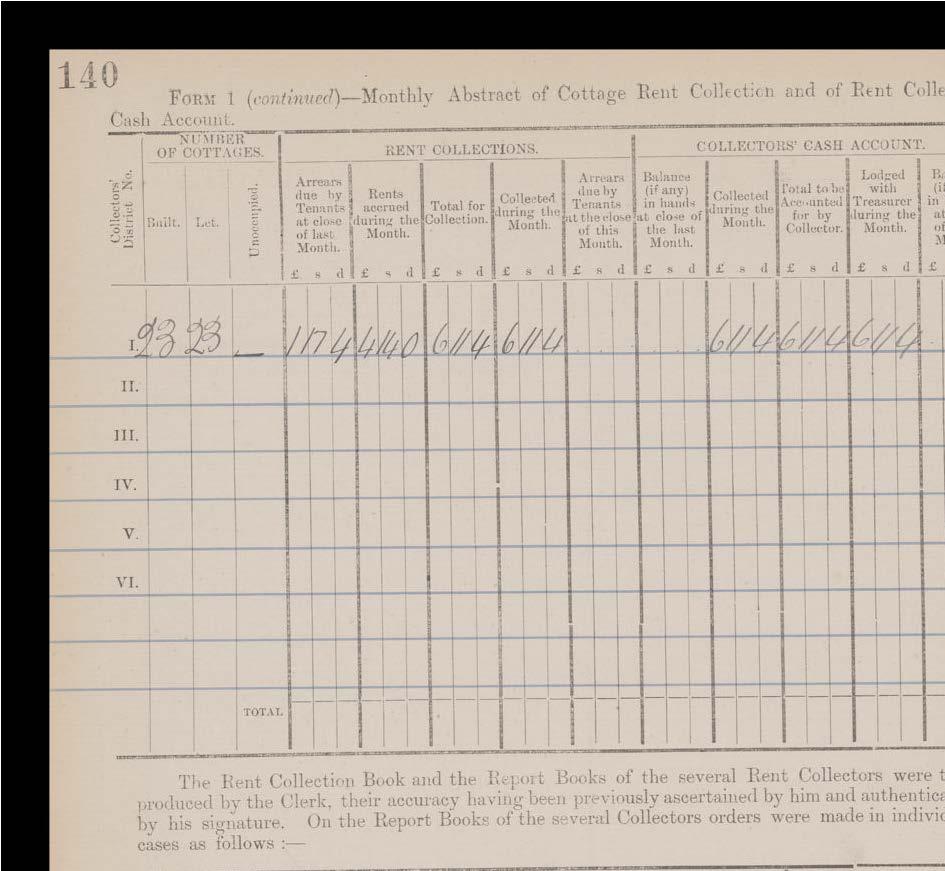 140
FORM 1 (continued)—Monthly Abstract of Cottage Rent Collection and of Rent Colle
Cash Account.
Collectors' District No.
NUMBER OF COTTAGES.
Built. Let. Unoccupied.
RENT COLLECTIONS.
Arrears due by Tenants at close of last Month.
Rents accrued during the Month.
Total for Collection.
Collected during the Month.
Arrears due by Tenants at the close of this Month.
COLLECTORS' CASH ACCOUNT.
Balance (if any) in hands at close of the last Month.
Collected during the Month.
Total to be Accounted for by Collector.
Lodged with Treasurer during the Month.
£ s d £ s d £ s d £ s d £ s d £ s d £ s d £ s d £ s d £
I. 23 23 — 1 17 4 4 14 0 6 11 4 6 11 4 6 11 4 6 11 4 6 11 4
II.
III.
IV.
V.
VI.
TOTAL
The Rent Collection Book and the Report Books of the several Rent Collectors were t
produced by the Clerk, their accuracy having been previously ascertained by him and authentica
by his signature. On the Report Books of the several Collectors orders were made in individ
cases as follows :—